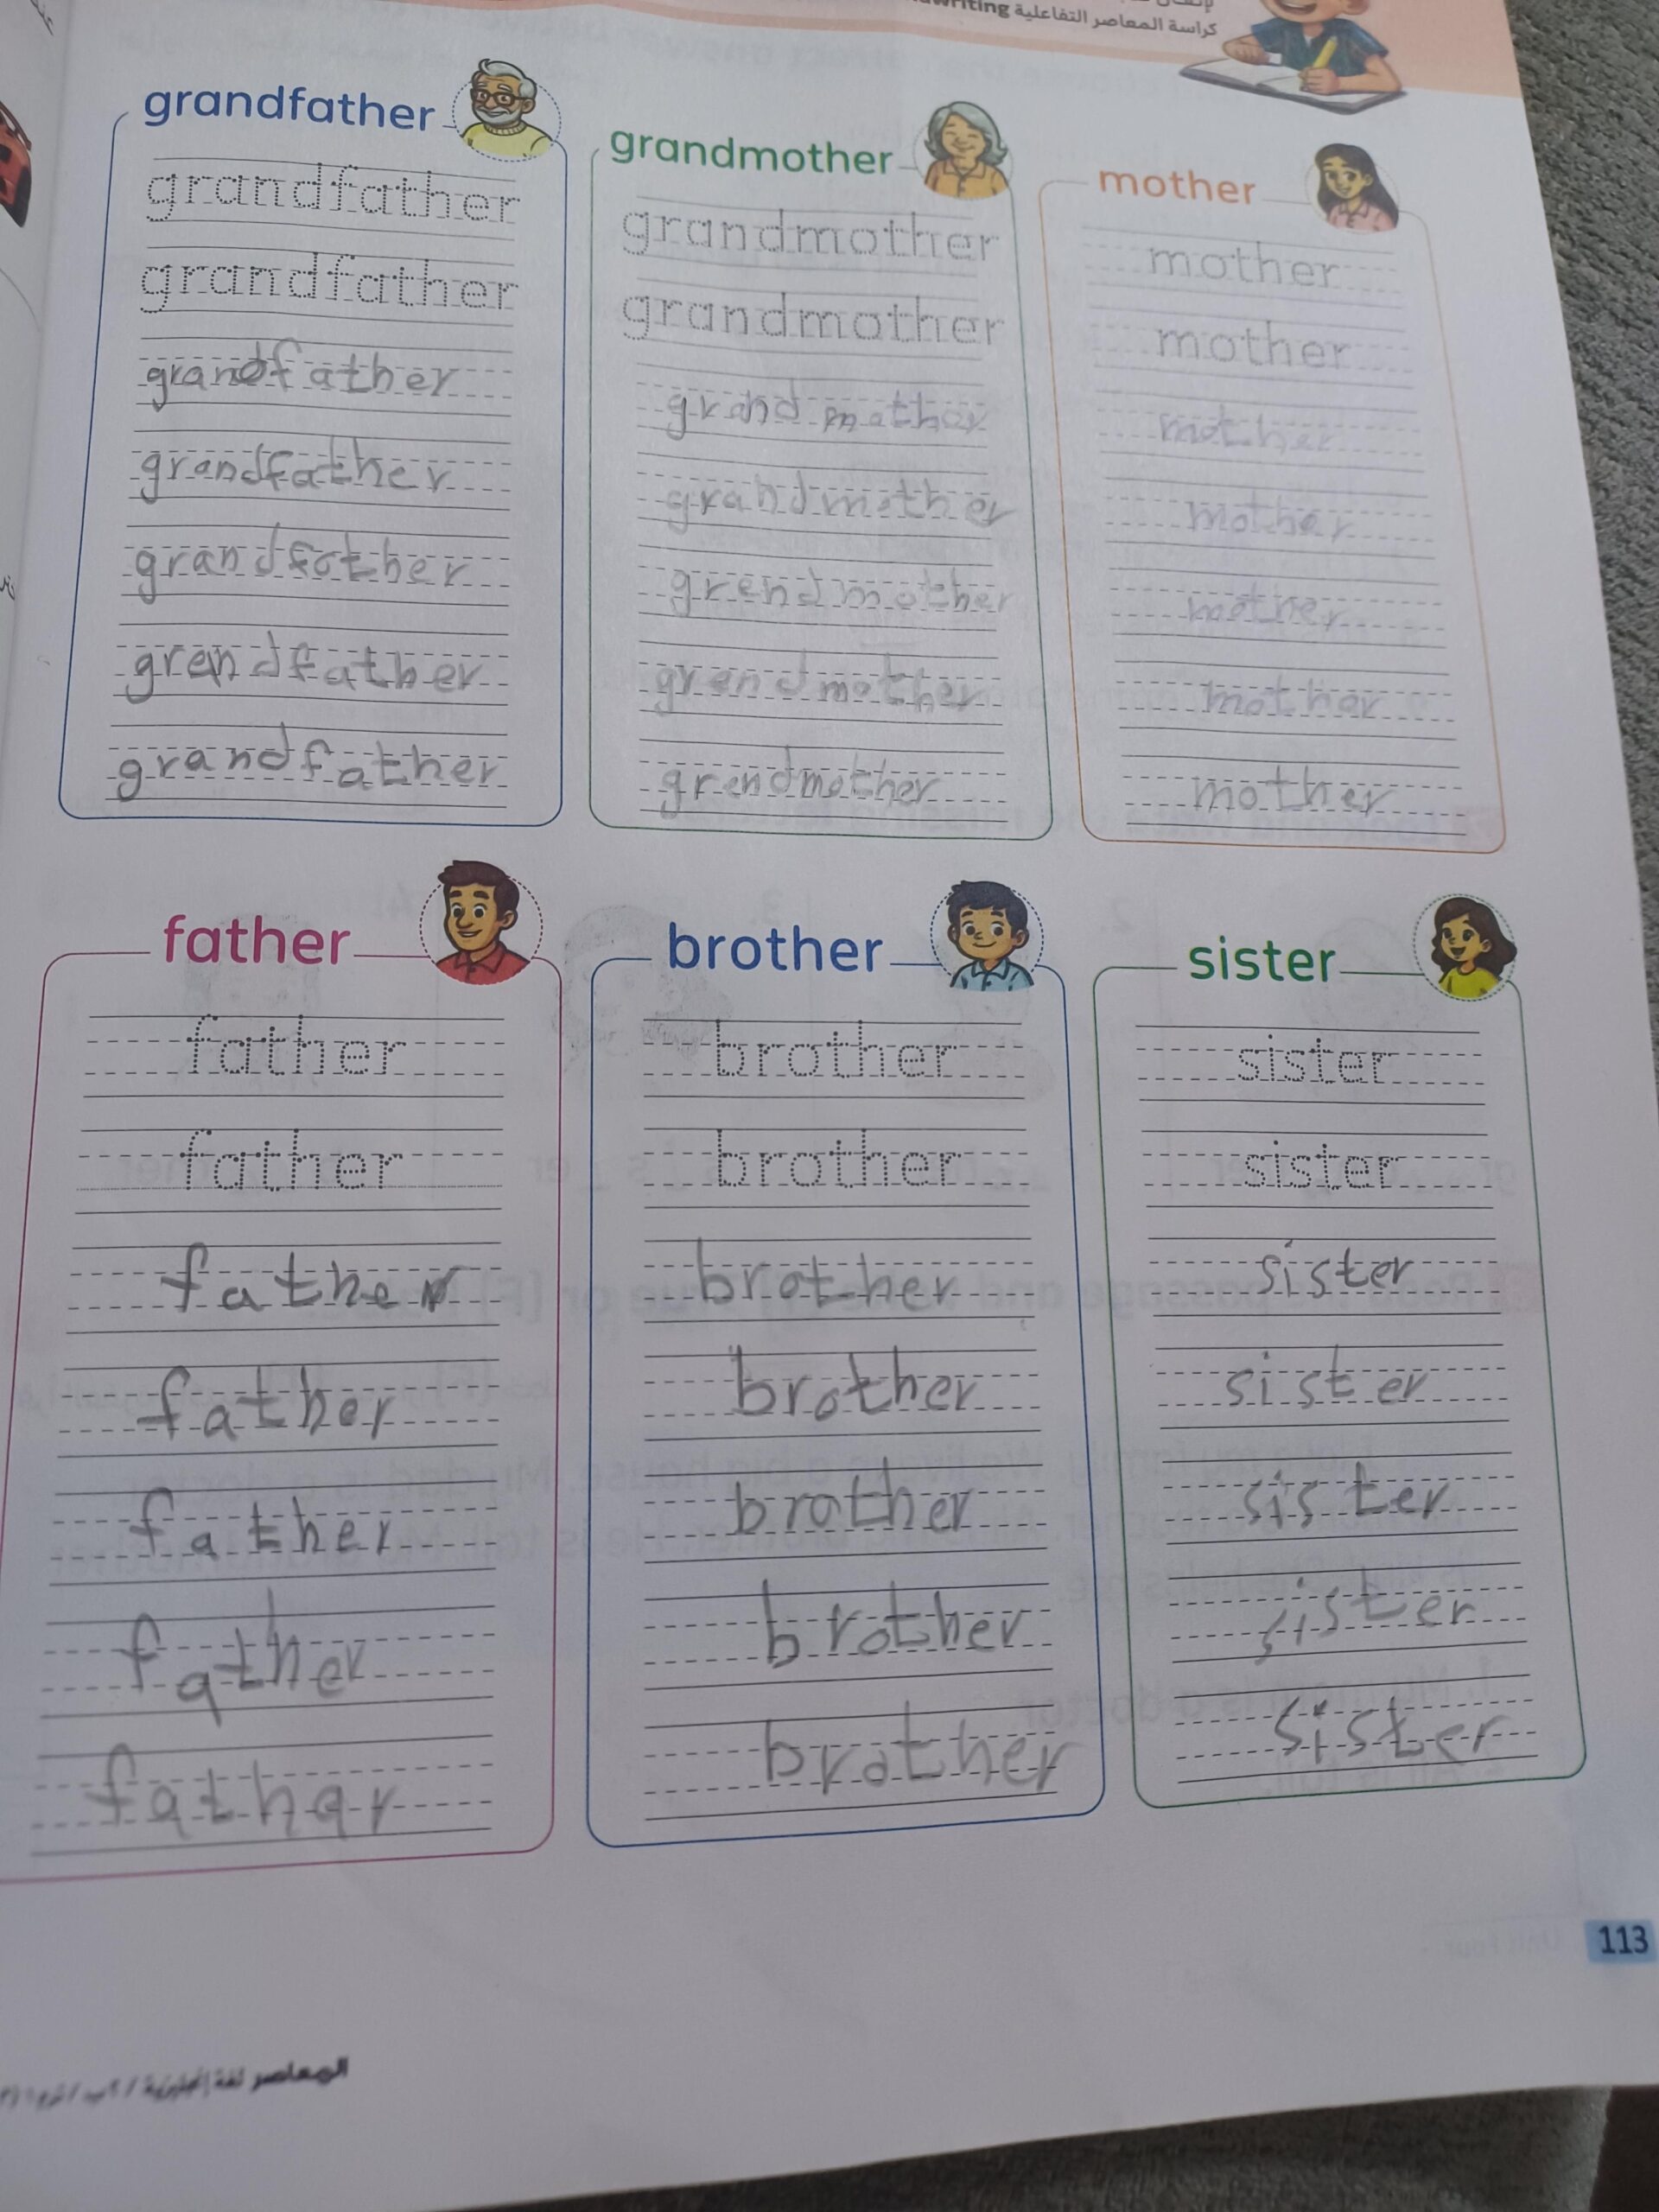 كراسة المعاصر التفاعلية
grandfather
grandfather
grandfather
grandfather
grandfather
grandfather
grendfather
grandfather
grandmother
grandmother
grandmother
grand mather
grandmother
grendmother
grendmother
grendmother
mother
mother
mother
mother
mother
mother
mother
mother
father
father
father
father
father
father
father
fathar
brother
brother
brother
brother
brother
brother
brother
brother
sister
sister
sister
sister
sister
sister
sister
sister
113
المعاصر لغة إنجليزية